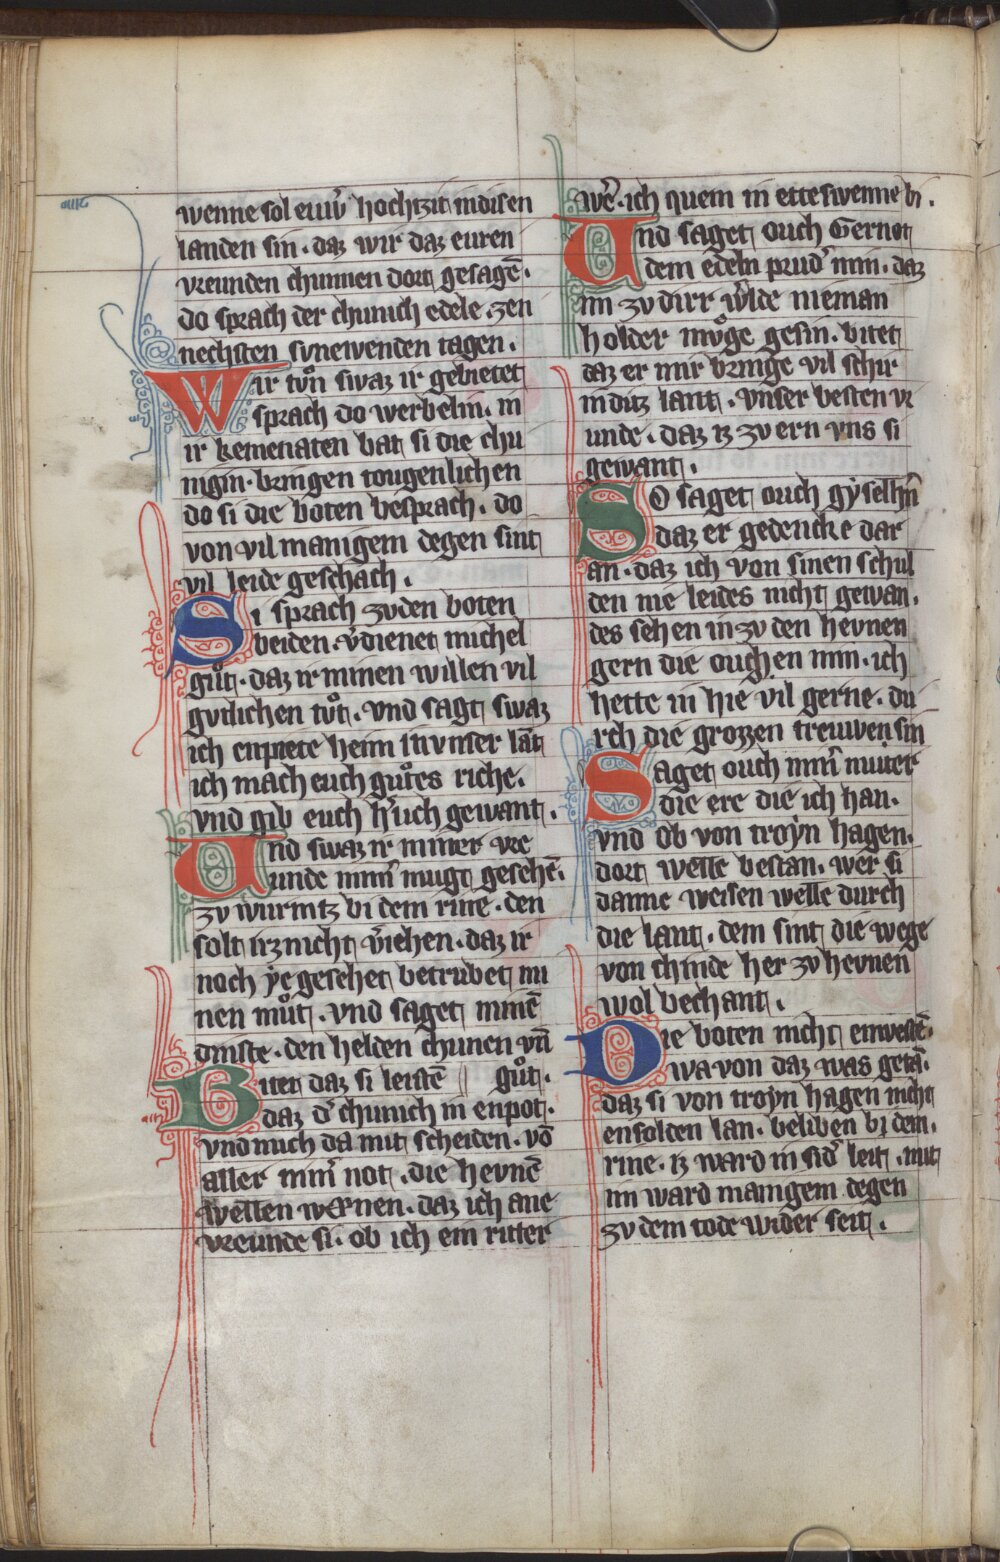 wenne sol euw͛ hochtzit indisen
landen sin · daz wir daz euren
vreunden chunnen dort gesagē ·
do sprach der chunich edele · zen
nechsten sunewenden tagen ·
Wir tůn swaz ir gebietet
sprach do werbelin · in
ir kemenaten bat si die chu
nigin · bringen tougenlichen
do si die boten besprach · do
von vil manigem degen sint
vil leide geschach ·
Si sprach zuden boten
beiden · v͛dienet michel
gůt · daz ir minen willen vil
gvtlichen tůt · vnd sagt swaz
ich enpiete heim in vnser lāt
ich mach euch gůtes riche ·
vnd gib euch h͛lich gewant ·
Und swaz ir miner vre
unde mim͛ mugt gesehē ·
zv wurmtz bi dem rine · den
solt irz nicht v͛iehen · daz ir
noch ye gesehet betrubet mi
nen můt · vnd saget minē
dinste · den helden chunen vn̄
Bitet daz si leistē gůt ·
daz d͛ chunich in enpot ·
vnd mich da mit scheiden · vō
aller min͛ not · die hevnē
wellen wænen · daz ich ane
vreunde si · ob ich ein ritter
wer͛ · ich quem in etteswenne bi ·
Und saget ouch Gernot
dem edeln prud͛ min · daz
im zv dirr w͛lde nieman
holder můge gesin · bitet
daz er mir bringe vil schir
in ditz lant · vnser besten vr
unde · daz iz zv ern vns si
gewant ·
So saget ouch gyselhn͛
daz er gedencke dar
an · daz ich von sinen schul
den nie leides nicht gewan ·
des sehen in zv den hevnen
gern die ouchen min · ich
hette in hie vil gerne · du
rch die grozzen treuwen sin
Saget ouch min͛ muter
die ere die ich han ·
vnd ob von troyn hagen ·
dort welle bestan · wer si
danne weisen welle durch
die lant · dem sint die wege
von chinde her zv hevnen
wol bechant ·
Die boten nicht enwestē ·
wa von daz was getā ·
daz si von troyn hagen nicht
ensolden lan · beliben bi dem ·
rine · iz ward in sid͛ leit · mit
im ward manigem degen
zv dem tode wider seit ·